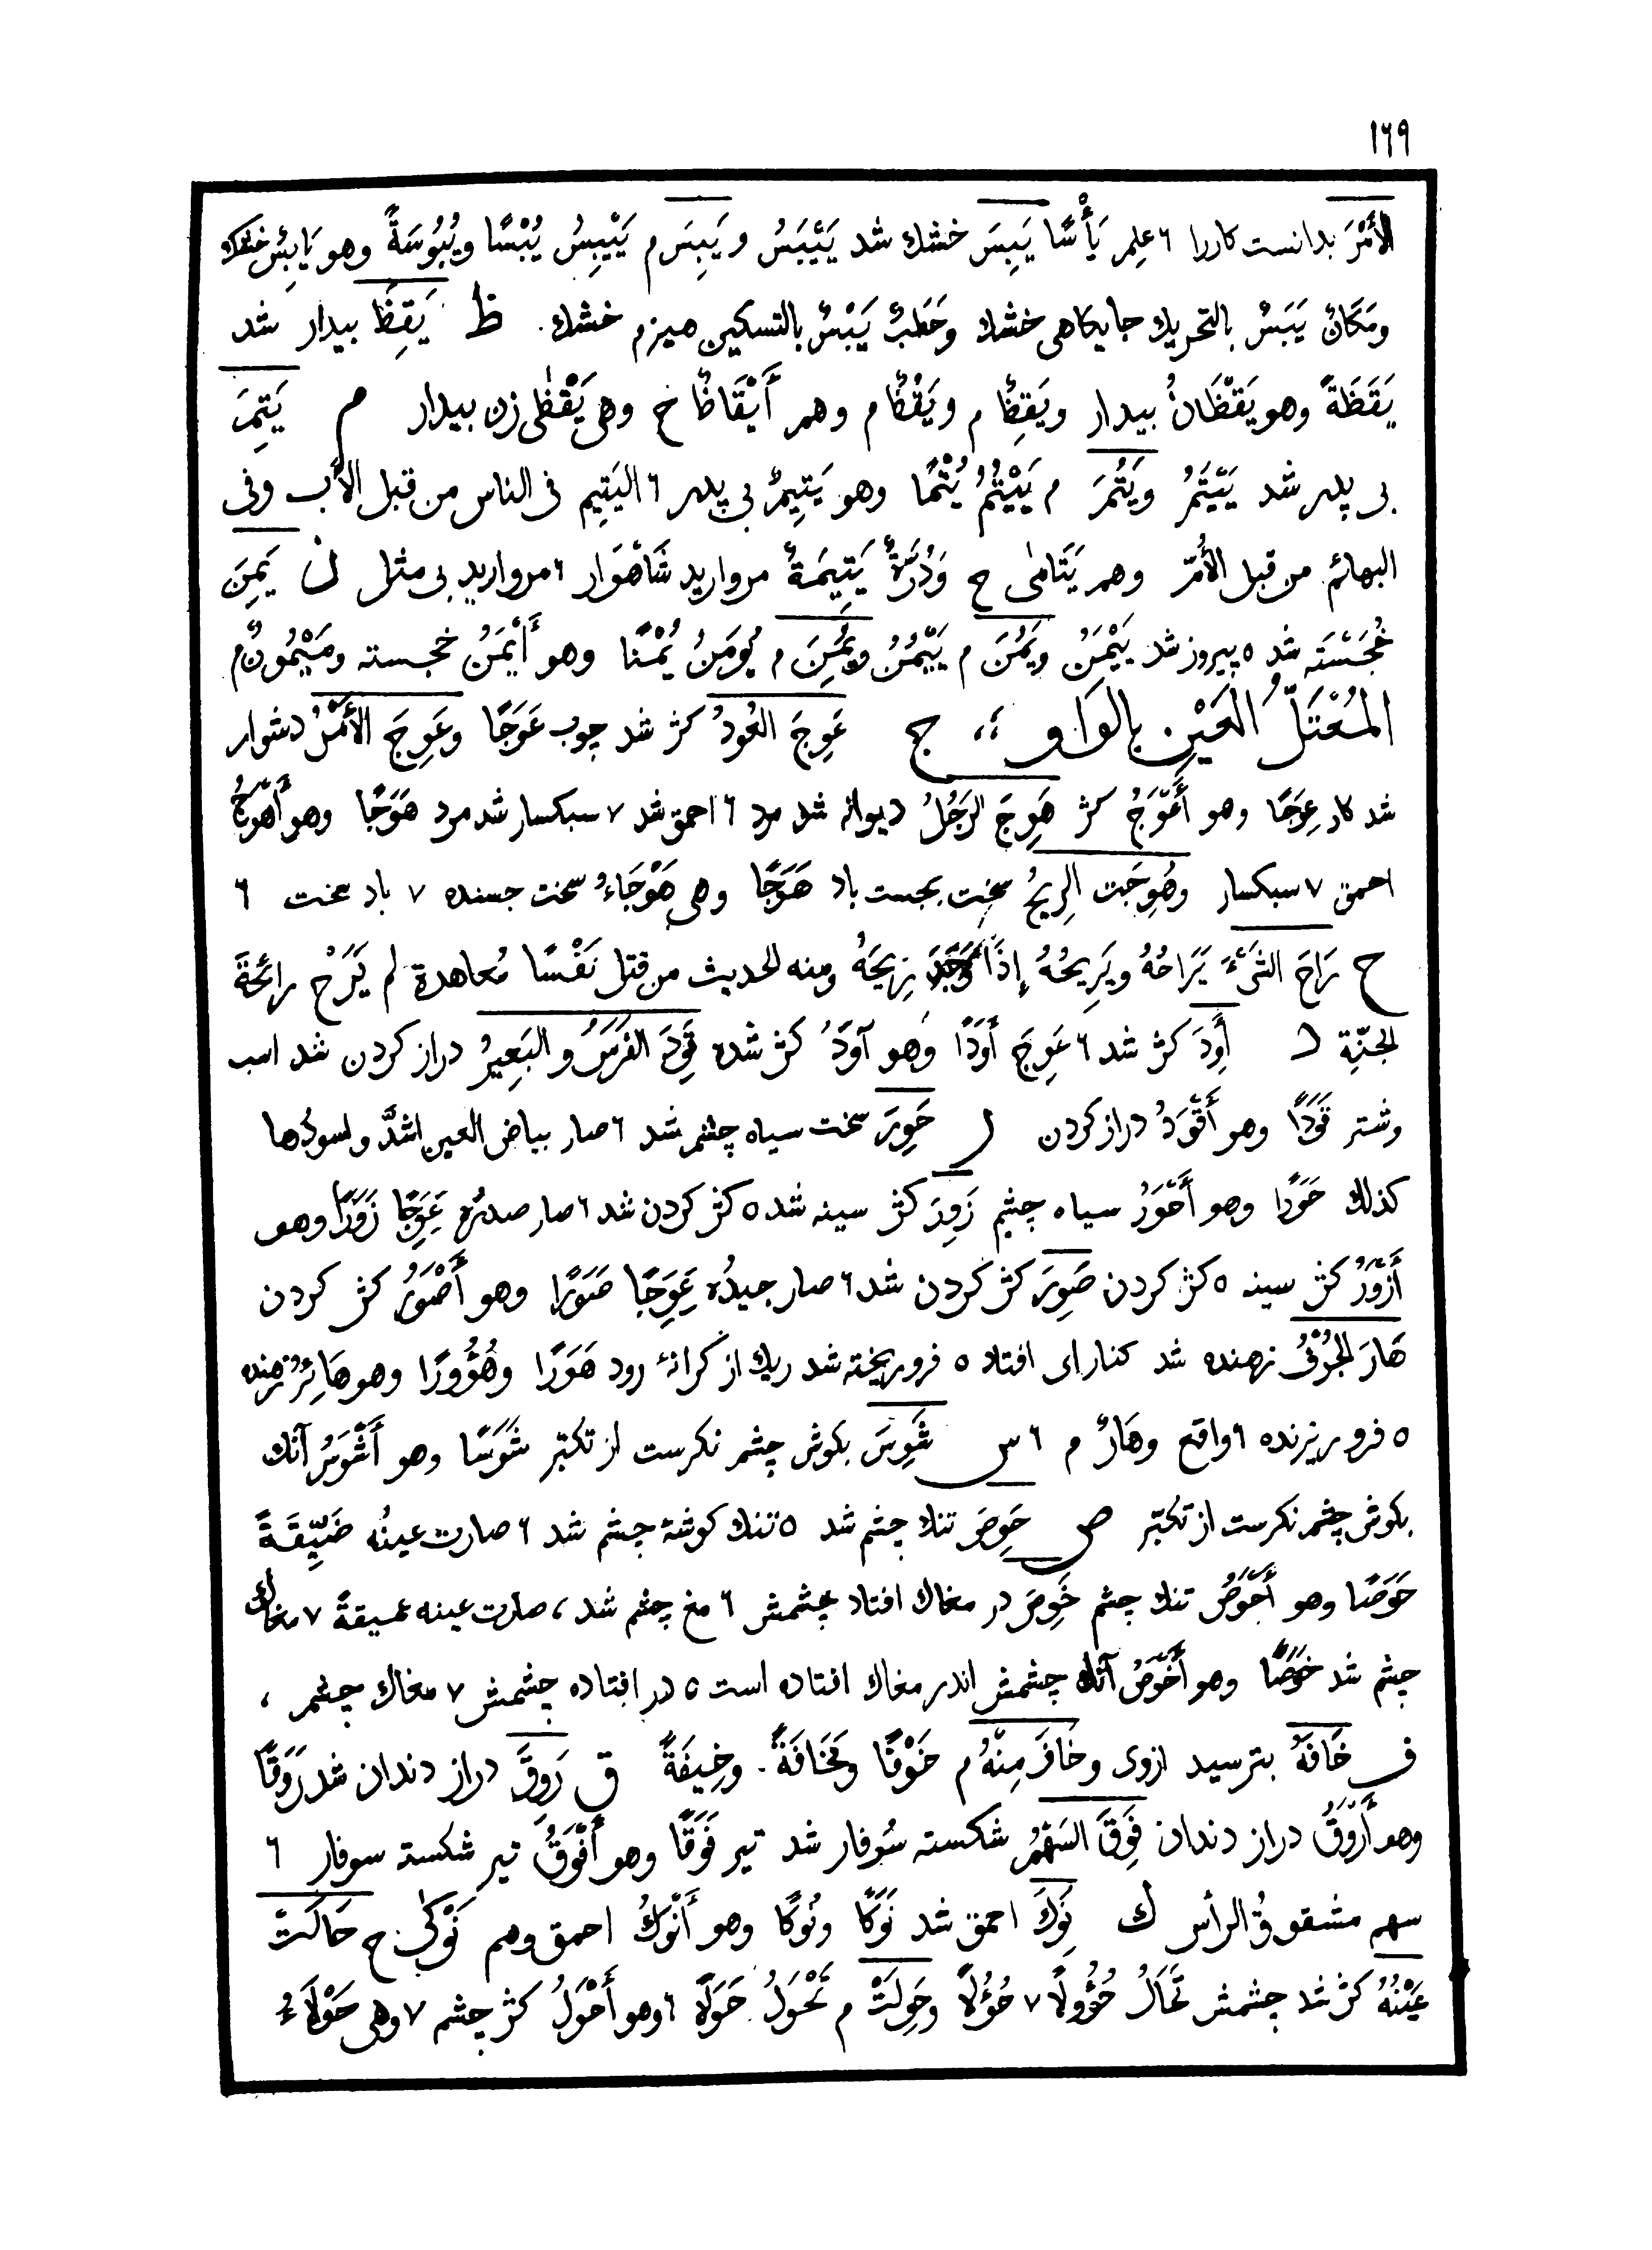 ١٦٩
الأَمْرَ بدانست كاررا ٦ علِم يَأْسًا يَبِسَ خشك شد يَيْبَسُ و يَبِسَ م يَيْبِسُ يُبْسًا ويُبُوسَةً وهو يَابِسٌ خشك
ومَكَانٌ يَبَسٌ بالتحريك جايكاهى خشك وحَطَبٌ يَبْسٌ بالتسكين هيزم خشك. ظ يَقِظَ بيدار شد
يَقَظَةً وهو يَقْظَانُ بيدار ويَقِظٌ م ويَقُظٌ م وهم أَيْقَاظٌ ج وهى يَقْظٰى زن بيدار م يَتِمَ
بى پدر شد يَيْتَمُ ويَتُمَ م يَيْتُمُ يُتْمًا وهو يَتِيمٌ بى پدر ٦ اليَتِيم فى الناس من قبل الأب وفى
البهائم من قبل الأُمّ وهم يَتَامٰى ج وَدُرَّةٌ يَتِيمَةٌ مرواريد شَاهْوَار ٦ مرواريد بى مثل ن يَمِنَ
خُجَسْتَه شد ٥ پيروز شد يَيْمَنُ ويَمُنَ م يَيْمُنُ ويُمِنَ م يُومَنُ يُمْنًا وهو أَيْمَنُ خجسته ومَيْمُونٌ م
المُعْتَلُّ العَيْنِ بالوَاو ،، ج عَوِجَ العُودُ كژ شد چوب عَوَجًا وعَوِجَ الأَمْرُ دشوار
شد كار عِوَجًا وهو أَعْوَجُ كژ هَوِجَ الرَجُلُ ديوانه شد مرد ٦ احمق شد ٧ سبكسار شد مرد هَوَجًا وهو أَهْوَجُ
احمق ٧ سبكسار وهَوِجَت الرِيحُ سخت بجست باد هَوَجًا وهى هَوْجَاءُ سخت جسنده ٧ باد سخت ٦
ح رَاحَ الشَىْءَ يَرَاحُهُ ويَرِيحُهُ إِذَا وَجَدَ رِيحَهُ ومنه الحديث من قتل نَفْسًا مُعاهدة لم يَرَحْ رائحَةَ
الجنّةِ د أَوِدَ كژ شد ٦ عَوِجَ أَوَدًا وهو آوَدُ كژ شده قَوِدَ الفَرَسُ و البَعِيرُ دراز كردن شد اسب
وشتر قَوَدًا وهو أَقْوَدُ دراز كردن ر حَوِرَ سخت سياه چشم شد ٦ صار بياض العين اشدَّ ولسودُها
كذلك حَوَرًا وهو أَحْوَرُ سياه چشم زَوِرَ كژ سينه شد ٥ كژ كردن شد ٦ صار صدرُه عَوِجًا زَوَرًا وهو
أَزْوَرُ كژ سينه ٥ كژ كردن صَوِرَ كژ كردن شد ٦ صار جيدُه عَوِجًا صَوَرًا وهو أَصْوَرُ كژ كردن
هَارَ الجُرْفُ رهنده شد كناراى افتاد ٥ فروريخته شد ريك از كرانهٔ رود هَوَرًا وهُؤُورًا وهو هَائِرٌ رهنده
٥ فرو ريزنده ٦ واقع وهَارٌ م ٦ س شَوِسَ بكوش چشم نكرست از تكبّر شَوَسًا وهو أَشْوَسُ آنك
بكوش چشم نكرست از تكبّر ص حَوِصَ تنك چشم شد ٥ تنك كوشهٔ چشم شد ٦ صارت عينُه ضَيِّقَةً
حَوَصًا وهو أَحْوَصُ تنك چشم خَوِصَ در مغاك افتاد چشمش ٦ مغ چشم شد، صارت عينه عميقةً ٧ مغاك
چشم شد خَوَصًا وهو أَخْوَصُ آنك چشمش اندر مغاك افتاده است ٥ در افتاده چشمش ٧ مغاك چشم ،
ف خَافَهُ بترسيد ازوى وخَافَ مِنْهُ م خَوْفًا ومَخَافَةً . وخِيفَةً ق رَوِقَ دراز دندان شد رَوَقًا
وهو أَرْوَقُ دراز دندان فَوِقَ السَهْمُ شكسته سُوفار شد تير فَوَقًا وهو أَفْوَقُ تير شكسته سوفار ٦
سهم مشقوقُ الرأس ك نَوِكَ احمق شد نَوَكًا ونُوكًا وهو أَنْوَكُ احمق وهم نَوْكٰى ج حَالَتْ
عَيْنُهُ كژ شد چشمش تَحَالُ حُؤُولًا ٧ حُؤُلًا وحَوِلَتْ م تَحْوَلُ حَوَلًا ٦ وهو أَحْوَلُ كژ چشم ٧ وهى حَوْلَاءُ